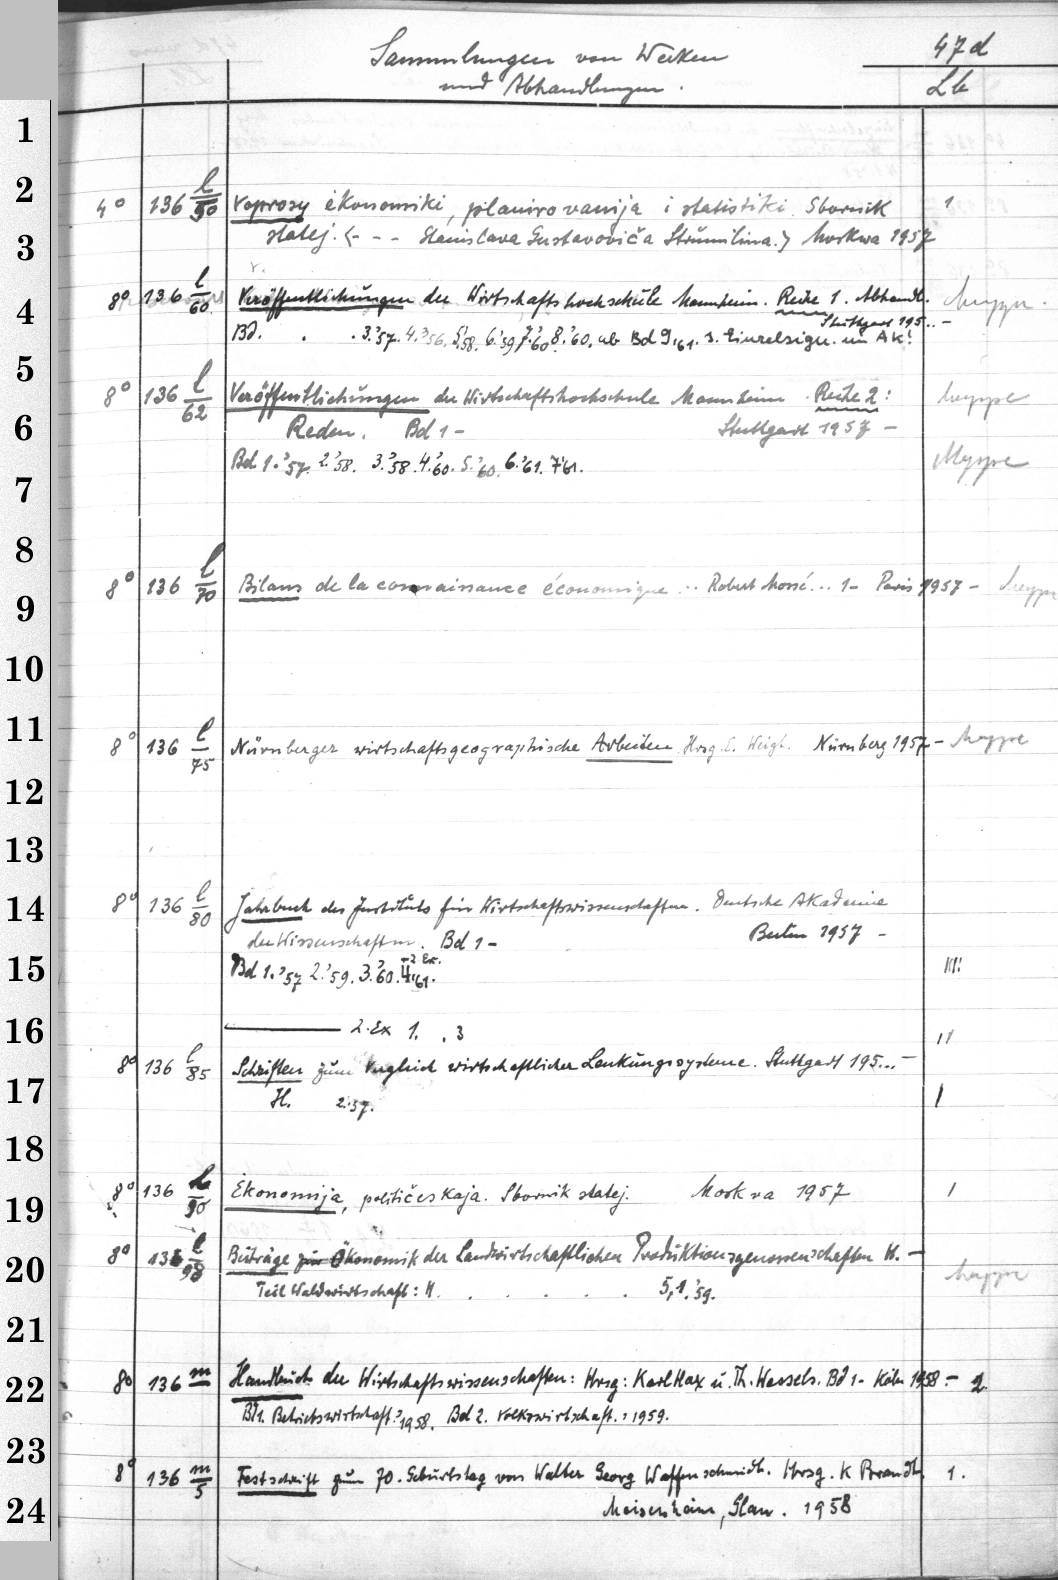 Sammlungen von Werken
47d
und Abhandlungen.
Lb
1
2
3
4
5
6
7
8
9
10
11
12
13
14
15
16
17
18
19
20
21
22
23
24
4° 136 l/50 Voprosy ėkonomiki, planirovanija i statistiki. Sbornik 1
statej. <- - - Stanislava Gustavoviča Strumilina.> Moskwa 1957
8° 136 l/60 Veröffentlichungen der Wirtschaftshochschule Mannheim. Reihe 1. Abhandl. Mappe.
Stuttgart 195.. -
Bd. . . 3.'57. 4.'56. 5.'58. 6.'59 7.'60 8.'60. ab Bd 9,'61. s. Einzelsign. im AK!
8° 136 l/62 Veröffentlichungen der Wirtschaftshochschule Mannheim. Reihe 2: Mappe
Reden. Bd 1 - Stuttgart 1957 -
Bd 1.'57. 2.'58. 3.'58. 4.'60. 5.'60. 6.'61. 7.'61. Mappe
8° 136 l/70 Bilans de la connaissance économique .. Robert Mossé... 1- Paris 1957 - Mappe
8° 136 l/75 Nürnberger wirtschaftsgeographische Arbeiten. Hrsg. E. Weigt. Nürnberg 1957 - Mappe
8° 136 l/80 Jahrbuch des Instituts für Wirtschaftswissenschaften. Deutsche Akademie
der Wissenschaften. Bd 1 - Berlin 1957 -
+2 Ex.
Bd 1.'57 2.'59. 3.'60. 4,'61. III!
——— 2. Ex 1. . 3 II
8° 136 l/85 Schriften zum Vergleich wirtschaftlicher Lenkungssysteme. Stuttgart 195... -
H. 2.57. I
8° 136 l/90 Ėkonomija, političeskaja. Sbornik statej. Moskva 1957 1
8° 136 l/98 Beiträge zur Ökonomik der Landwirtschaftlichen Produktionsgenossenschaften H. -
Teil Waldwirtschaft: H. . . . . . 5,1.'59. Mappe
8° 136 m Handbuch der Wirtschaftswissenschaften: Hrsg: Karl Hax u. Th. Wessels. Bd 1- Köln 1958 - 2
Bd 1. Betriebswirtschaft.'1958. Bd 2. Volkswirtschaft.: 1959.
8° 136 m/5 Festschrift zum 70. Geburtstag von Walter Georg Waffenschmidt. Hrsg. K Brandt. 1.
Meisenheim, Glan. 1958